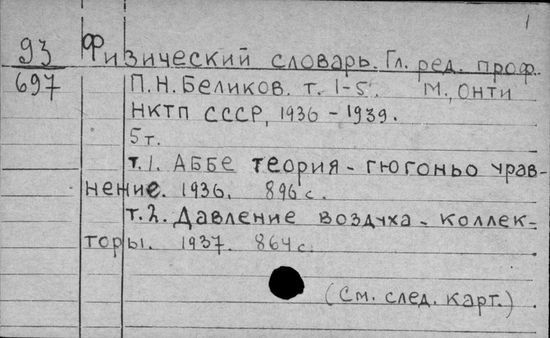 1
93
697
Физический словарь. Гл. ред. проф.
П.Н. Беликов. т. 1-5. М., ОНТИ
НКТП СССР, 1936 - 1939.
5 т.
т. 1. Аббе теория - Гюгоньо урав-
нение. 1936. 896 с.
т. 2. Давление воздуха - коллек-
торы. 1937. 864 с.
(См. след. карт.)